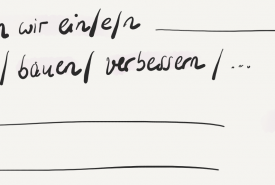 n wir ein/e/n
/ bauen/ verbessern / ...